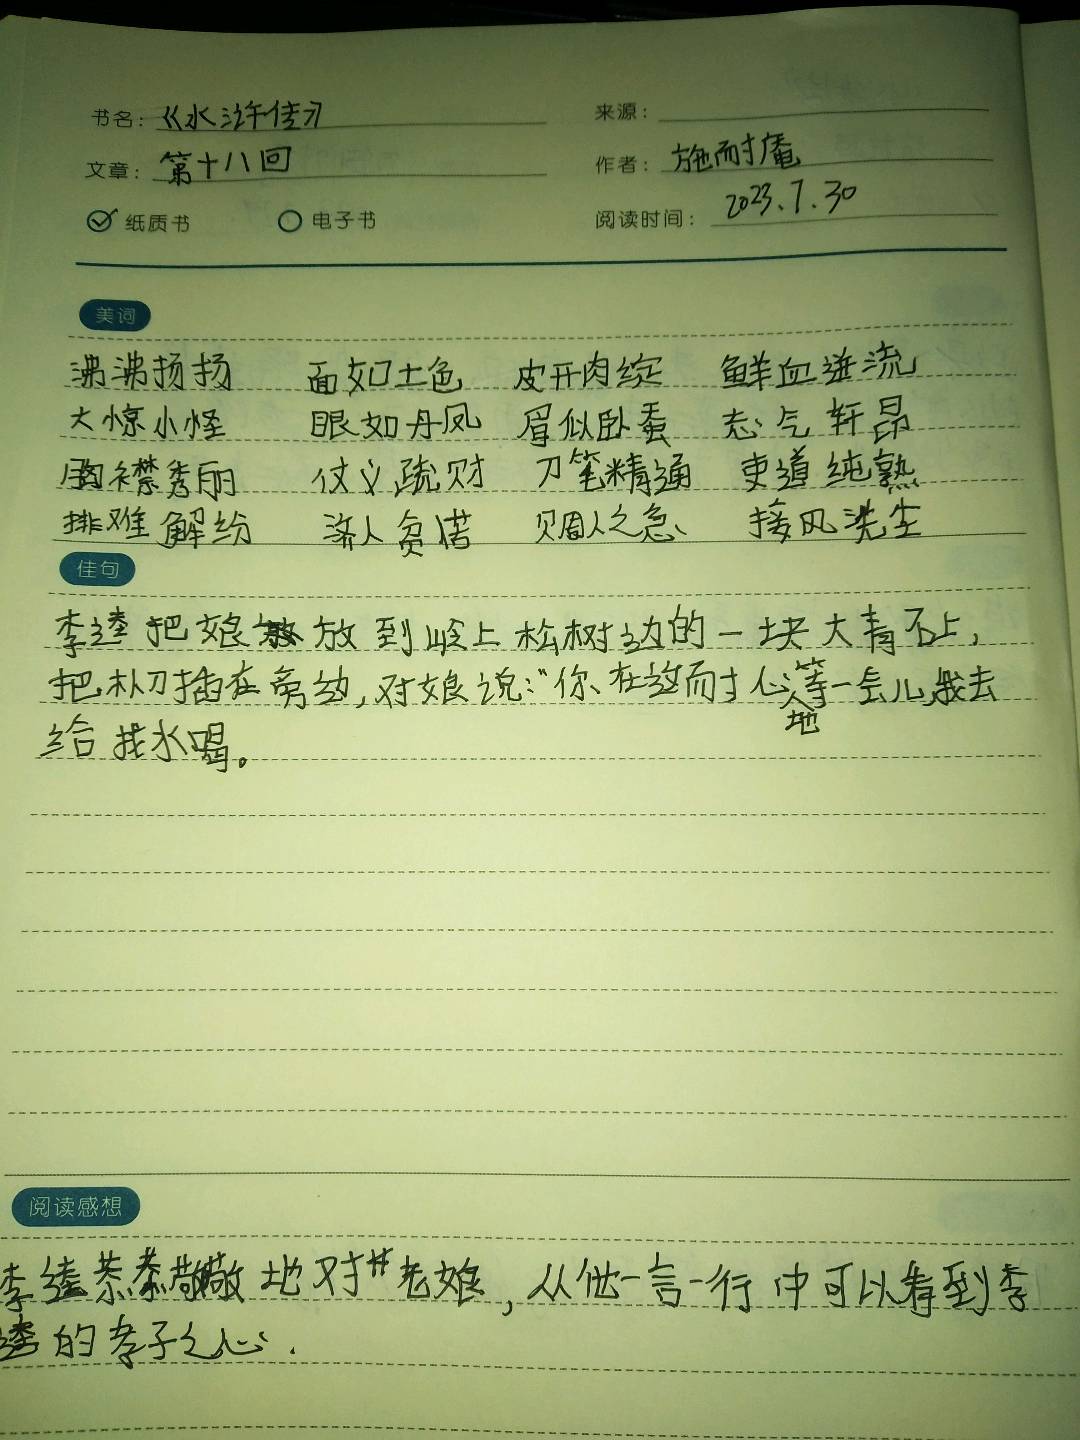 书名：《水浒传》
来源：
文章：第十八回
作者：施耐庵
纸质书 电子书
阅读时间：2023.7.30
美词
沸沸扬扬 面如土色 皮开肉绽 鲜血迸流
大惊小怪 眼如丹凤 眉似卧蚕 志气轩昂
胸襟秀丽 仗义疏财 刀笔精通 吏道纯熟
排难解纷 济人贫苦 赒人之急 接风洗尘
佳句
李逵把娘放到岭上松树边的一块大青石上，
把朴刀插在旁边，对娘说：“你在这耐心地等一会儿，我去
给找水喝。
阅读感想
李逵恭恭敬敬地对老娘，从他一言一行中可以看到李
逵的孝子之心.